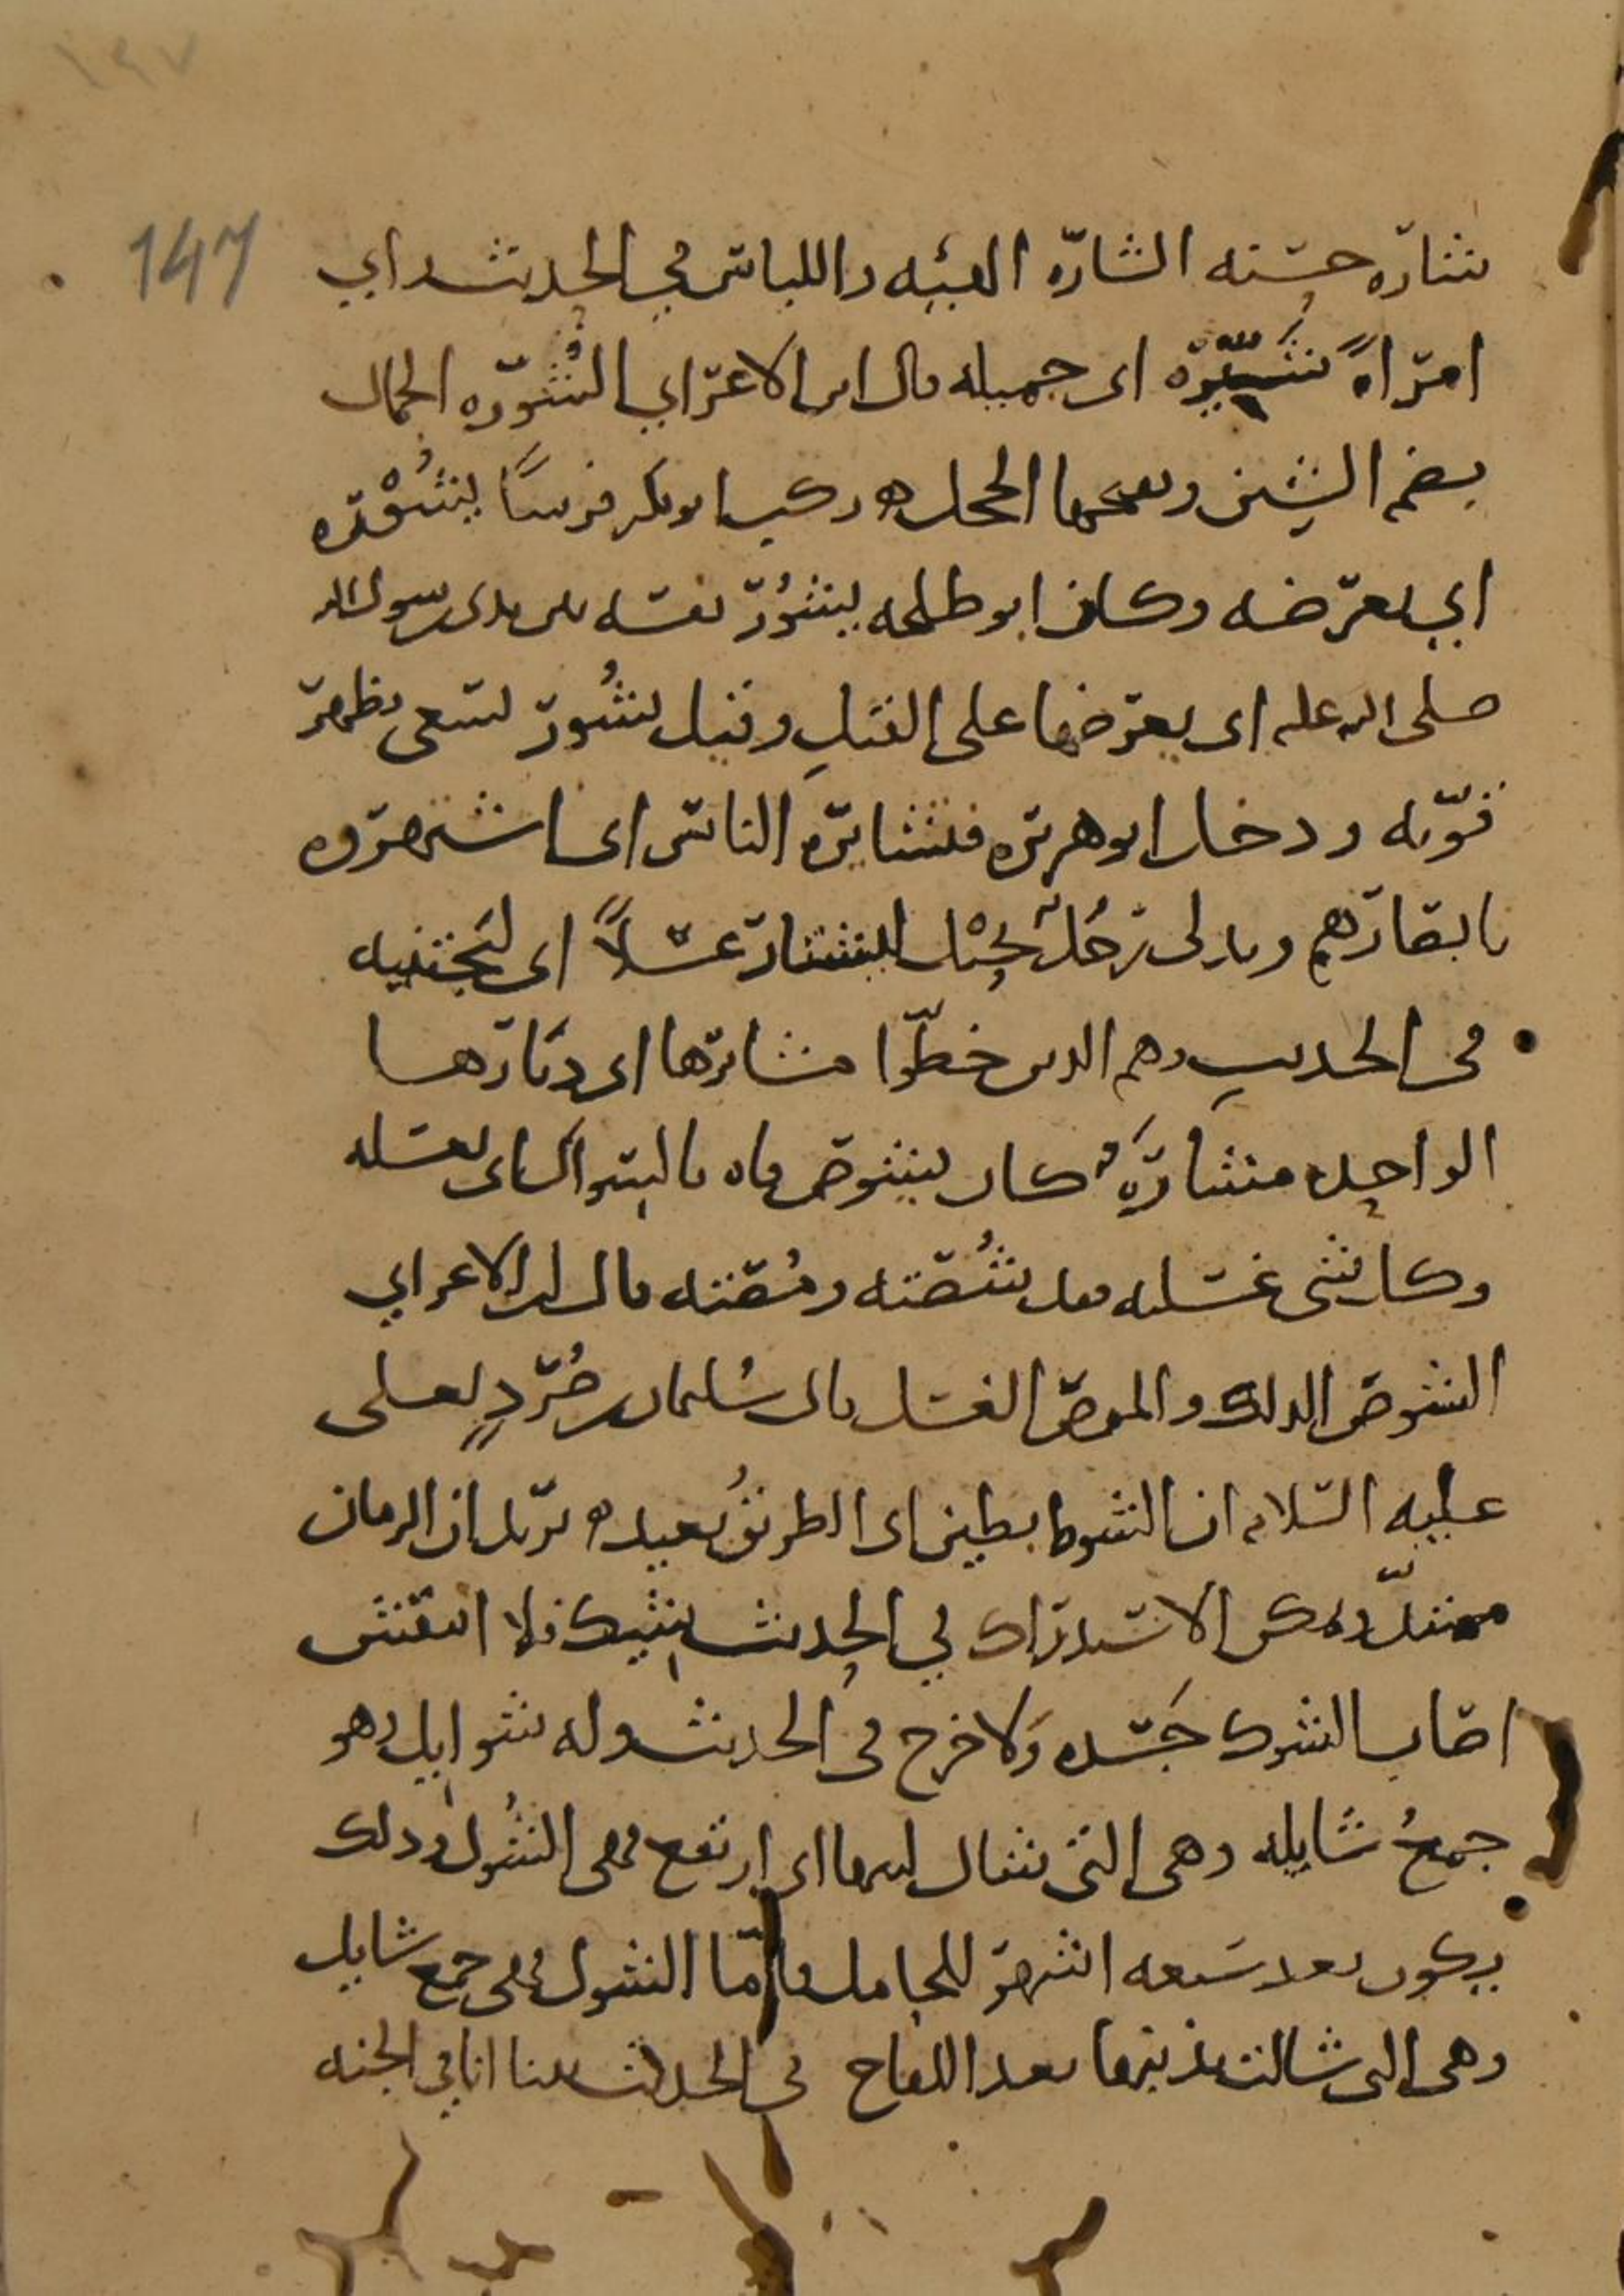 ١٤٧
147
شاره حسنه الشارة الهيئه واللباس في الحديث راي
امراةً شَيِّرَة اى جميله قال ابن الاعرابي الشُّوره الجمال
بضم الشين وبفتحها الخجل ه ركب ابو بكر فرسًا يشُوْره
اي يعرضه وكان ابو طلحه يشُوْر نفسه بين يدي رسول الله
صلى الله عليه اى يعرضها على القتلِ وقيل يشُور يسعى يظهر
قوّته ودخل ابو هريره فتشايره الناس اى اشتهروه
بابصارهم وتدلى رجُلٌ بحَبْل ليشتار عسلاً اى ليَجتنيه
فى الحديث وهم الذين خطّوا مشايرها اى ديارها
الواحده مشارَه كان يشوص فاه بالسواك اى يغسله
وكل شى غسلته فقد شُصته ومُصته قال ابن الاعرابي
الشوص الدلك والموص الغسل قال سُليمان بن صُرَدٍ لعلى
عليه السلام ان الشوط بطين اى الطريقُ بعيده يريد ان الزمان
ممتدّ يمكن الاستدراك في الحديث شيك فلا انتقش
اصاب الشوك جَسده ولا خرج فى الحديث وله شوايل وهو
جمعُ شايله وهى التى شال لبنها اى ارتفع فهى الشُول وذلك
يكون بعد سبعه اشهر للحامل فاَمّا الشول فهى جمع شايل
وهى التى شالت بذنبها بعد اللقاح فى الحديث بينا انا في الجنه